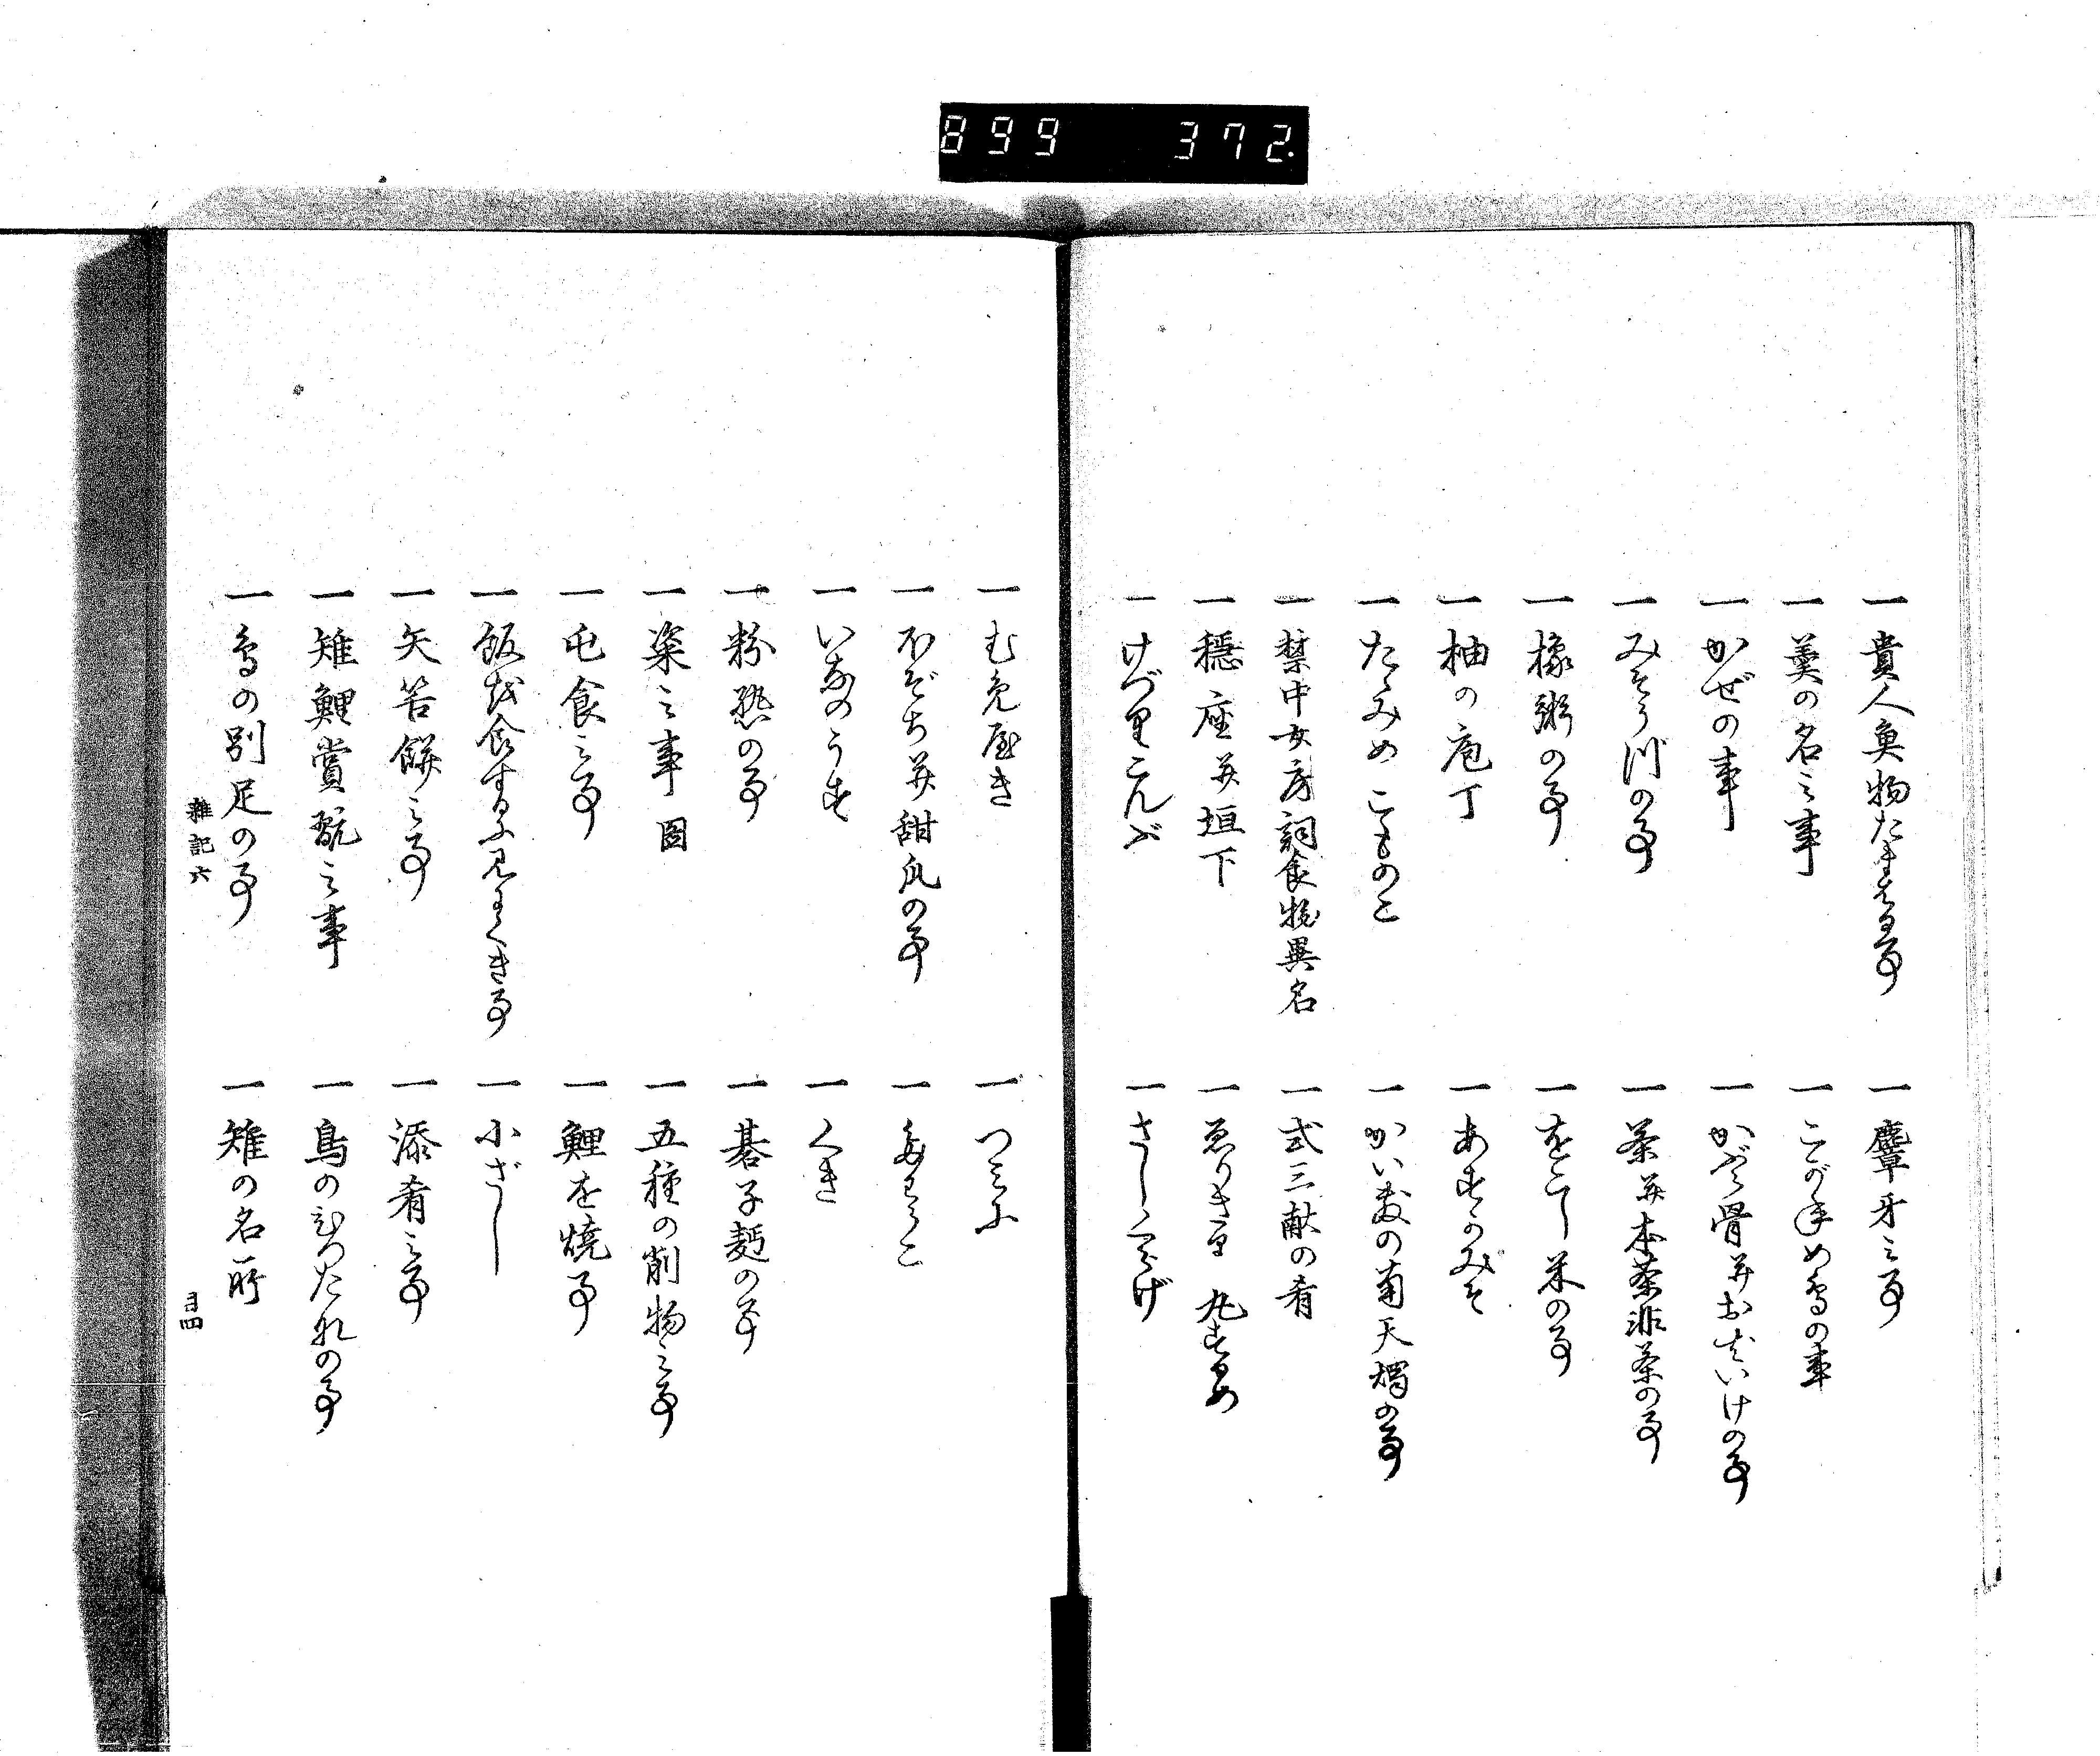 899 372
一貴人魚物たまはる事
一麞牙之事
一羹の名之事
一こがねめ鳥の事
一かぜの事
一かぶら骨并おほいけの事
一みそうづの事
一茶并本茶非茶の事
一椽粥の事
一をこし米の事
一柚の庖丁
一あすかみそ
一たゝみめこものこ
一かい敷の南天燭の事
一禁中女房詞食物異名
一式三献の肴
一穏座并垣下
一ゑりき里 丸すゝめ
一けづりこんぶ
一さしくらげ
一むき屋き
一つミ入
一ほぞち并甜瓜の事
一いなのうす
一くき
一粉熟の事
一碁子麺の事
一粢之事 図
一五種の削物之事
一屯食之事
一鯉を焼事
一飯を食するに見すべき事
一小ざし
一矢苦餅之事
一添肴之事
一雉鯉賞翫之事
一鳥のひつたれの事
一鳥の別足の事
一雉の名所
雑記六
目四